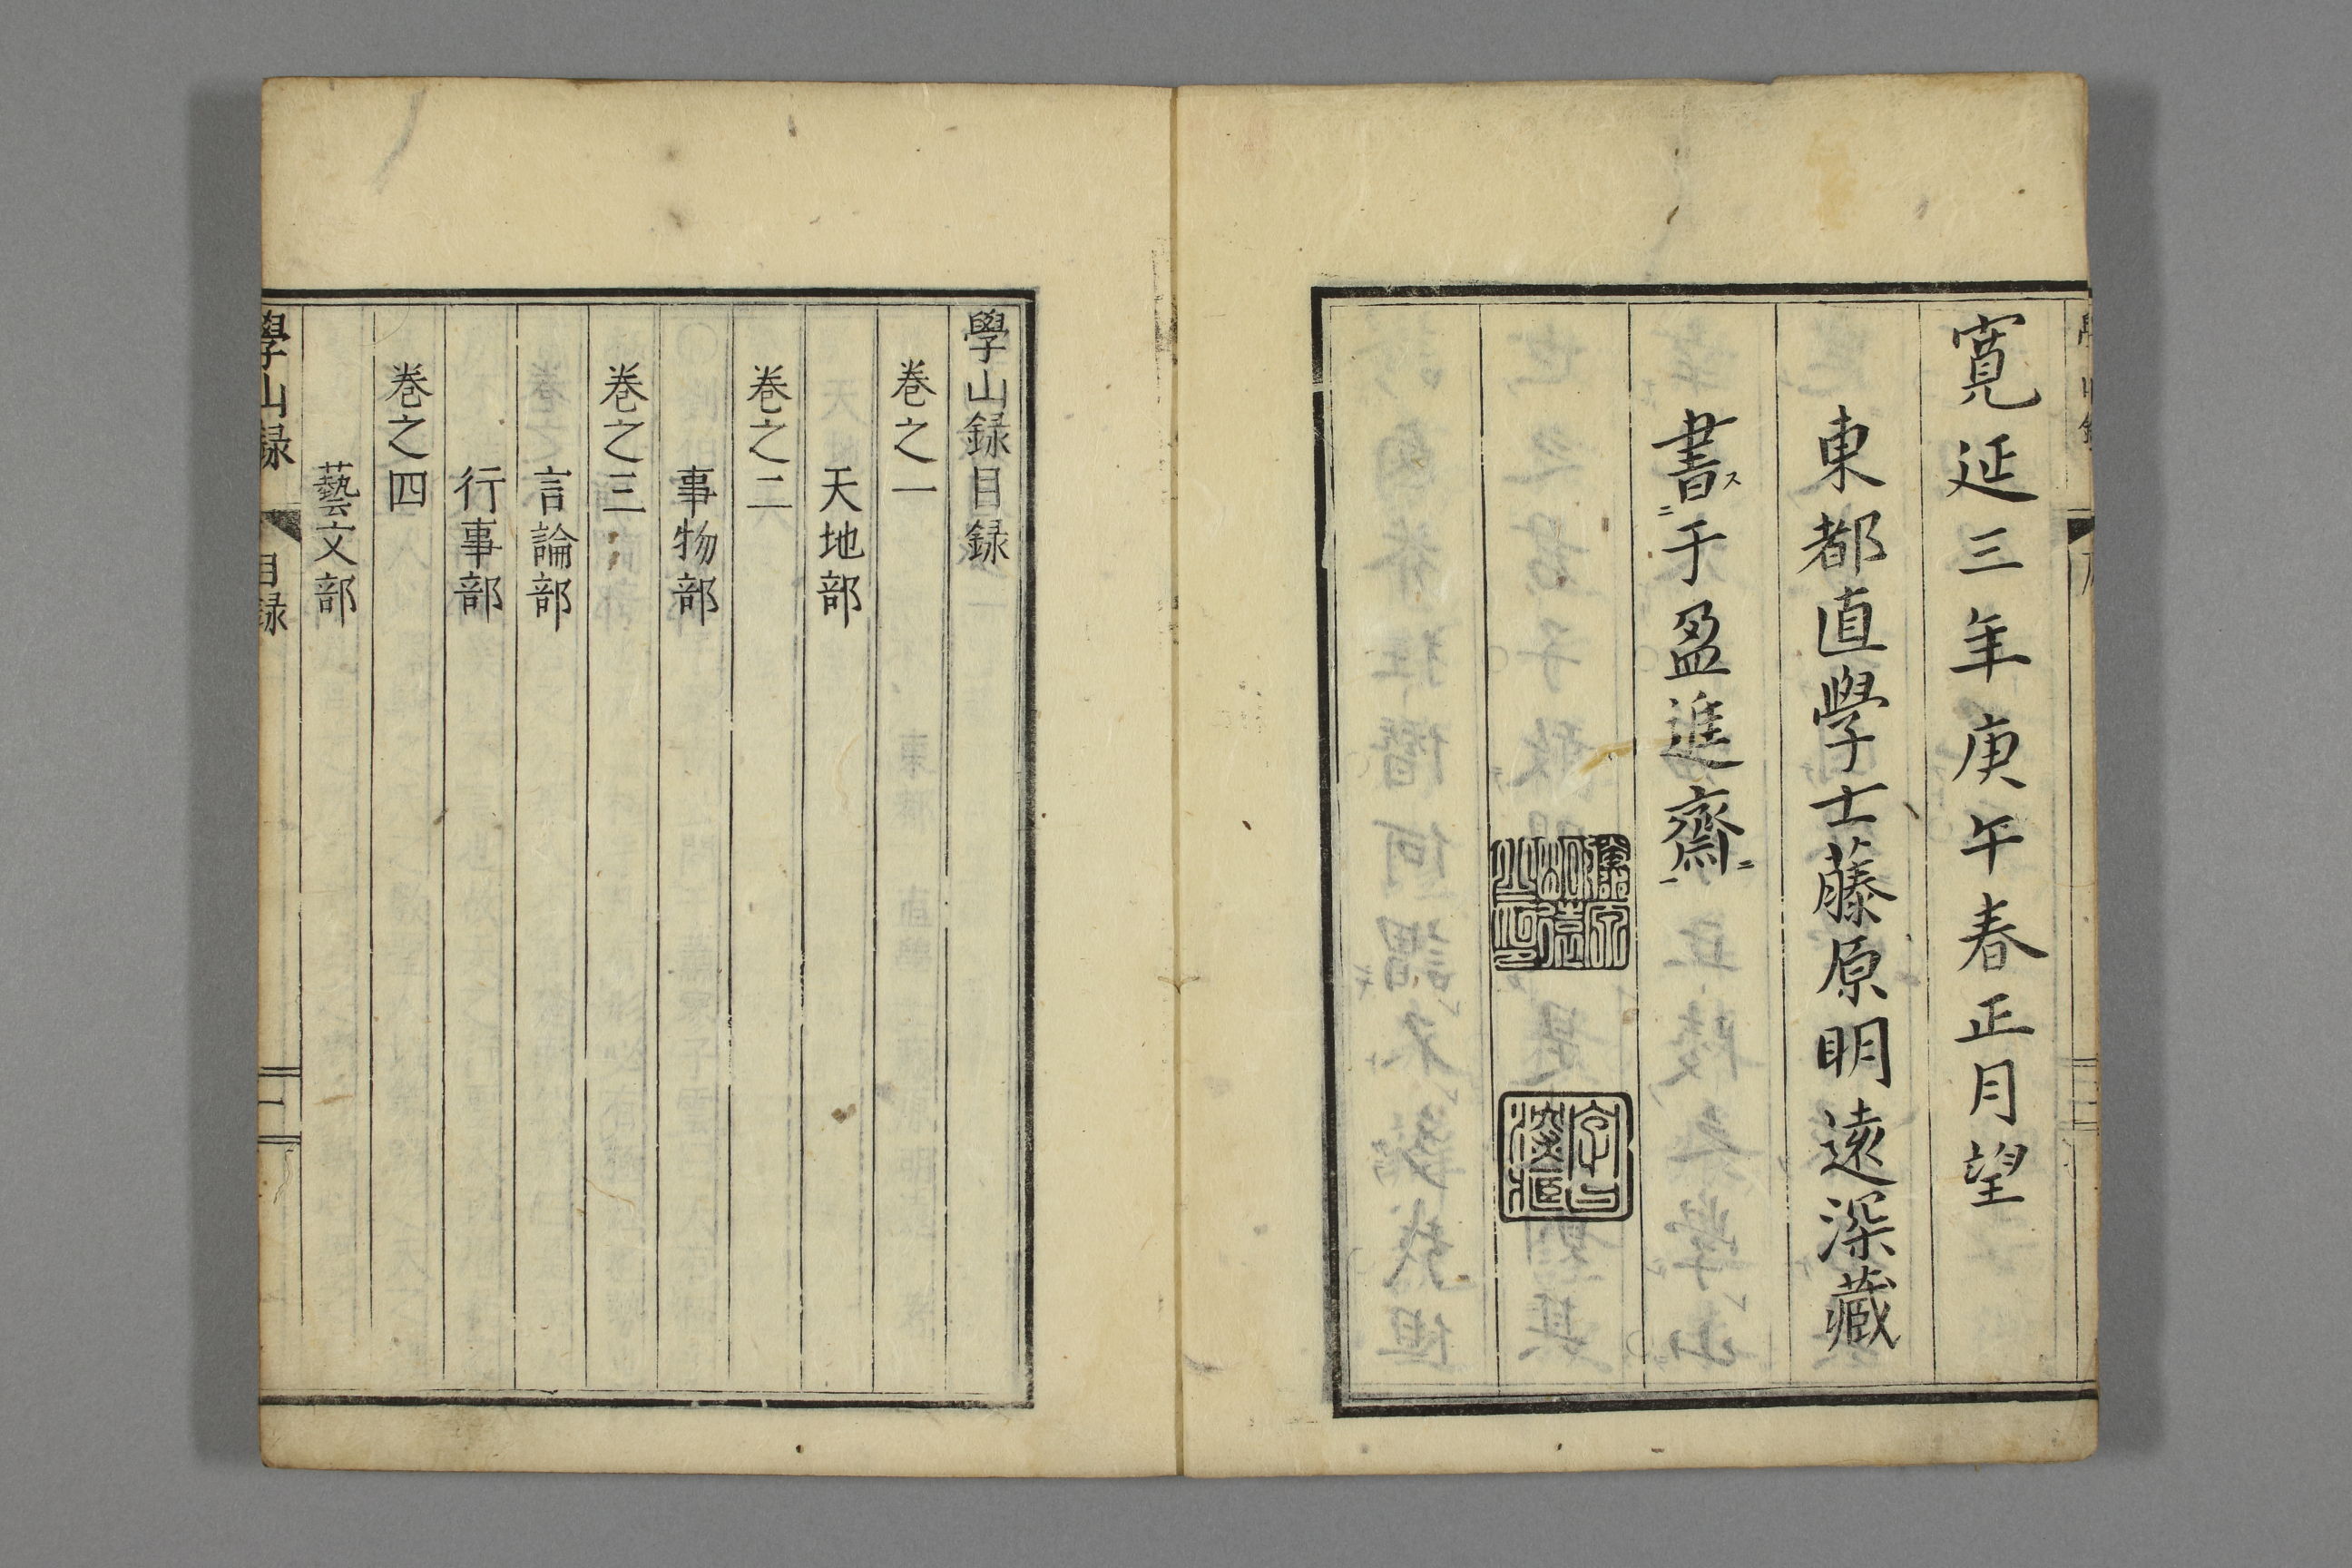 寛延三年庚午春正月望
東都直學士藤原明遠深藏
書ス二于盈進齋ニ一
學山録目録
巻之一
天地部
巻之二
事物部
巻之三
言論部
行事部
巻之四
藝文部
學山録 目録 一